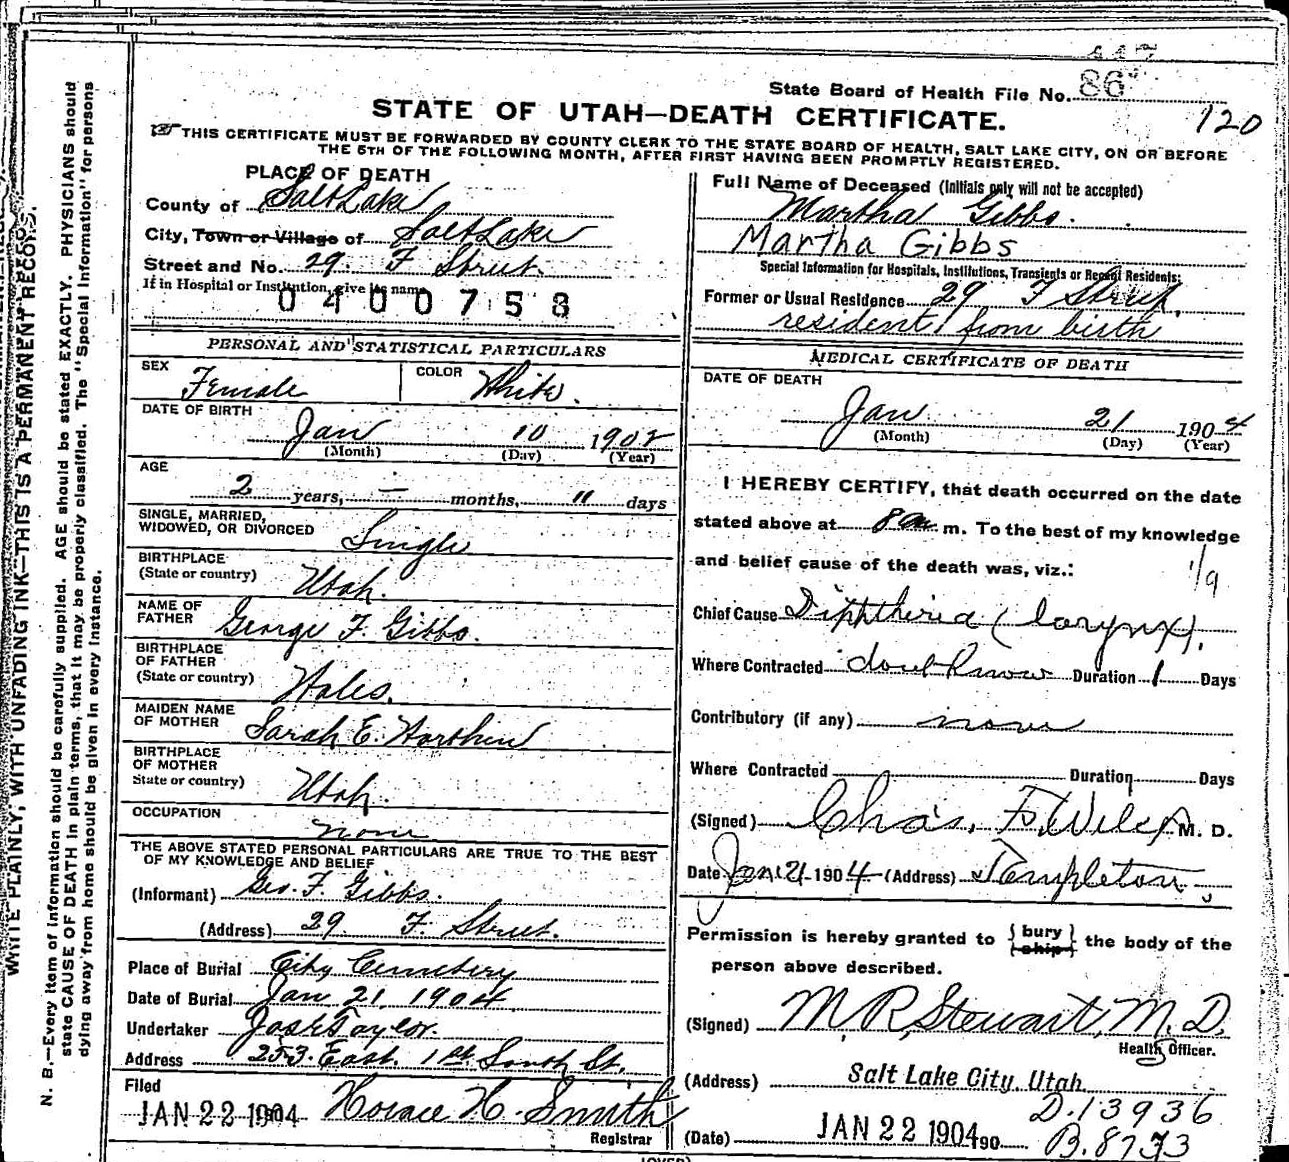 447
State Board of Health File No. 86
120
STATE OF UTAH—DEATH CERTIFICATE.
☞THIS CERTIFICATE MUST BE FORWARDED BY COUNTY CLERK TO THE STATE BOARD OF HEALTH, SALT LAKE CITY, ON OR BEFORE
THE 5TH OF THE FOLLOWING MONTH, AFTER FIRST HAVING BEEN PROMPTLY REGISTERED.
PLACE OF DEATH
County of Salt Lake
City, Town or Village of Salt Lake
Street and No. 29 F Street.
If in Hospital or Institution, give its name
0400758
PERSONAL AND STATISTICAL PARTICULARS
SEX Female
COLOR White.
DATE OF BIRTH
Jan 10 1902
(Month) (Day) (Year)
AGE
2 years, — months, 11 days
SINGLE, MARRIED,
WIDOWED, OR DIVORCED Single
BIRTHPLACE
(State or country) Utah.
NAME OF
FATHER George F. Gibbs.
BIRTHPLACE
OF FATHER
(State or country) Wales.
MAIDEN NAME
OF MOTHER Sarah E.
BIRTHPLACE
OF MOTHER
State or country) Utah.
OCCUPATION
none
THE ABOVE STATED PERSONAL PARTICULARS ARE TRUE TO THE BEST
OF MY KNOWLEDGE AND BELIEF
(Informant) Geo. F. Gibbs.
(Address) 29 F. Street.
Place of Burial City Cemetery
Date of Burial Jan 21 1904
Undertaker Taylor.
Address 253 East 1st South St.
Filed
JAN 22 1904 Horace H. Smith
Registrar
Full Name of Deceased (Initials only will not be accepted)
Martha Gibbs.
Martha Gibbs
Special Information for Hospitals, Institutions, Transients or Recent Residents:
Former or Usual Residence 29 F Street.
resident from birth
MEDICAL CERTIFICATE OF DEATH
DATE OF DEATH
Jan 21 1904
(Month) (Day) (Year)
I HEREBY CERTIFY, that death occurred on the date
stated above at 8 a m. To the best of my knowledge
and belief cause of the death was, viz.:
1/9
Chief Cause Diphtheria (larynx).
Where Contracted dont know Duration 1 Days
Contributory (if any) none
Where Contracted Duration Days
(Signed) Chas. F. Wilcox M. D.
Date Jan 21 1904 (Address) Templeton
Permission is hereby granted to {bury ship} the body of the
person above described.
(Signed) M R Stewart, M. D.
Health Officer.
(Address) Salt Lake City, Utah
D.13936
(Date) JAN 22 1904 190
B.8733
(OVER)
WRITE PLAINLY, WITH UNFADING INK—THIS IS A PERMANENT RECORD.
N. B.—Every item of information should be carefully supplied. AGE should be stated EXACTLY. PHYSICIANS should
state CAUSE OF DEATH in plain terms, that it may be properly classified. The "Special Information" for persons
dying away from home should be given in every instance.